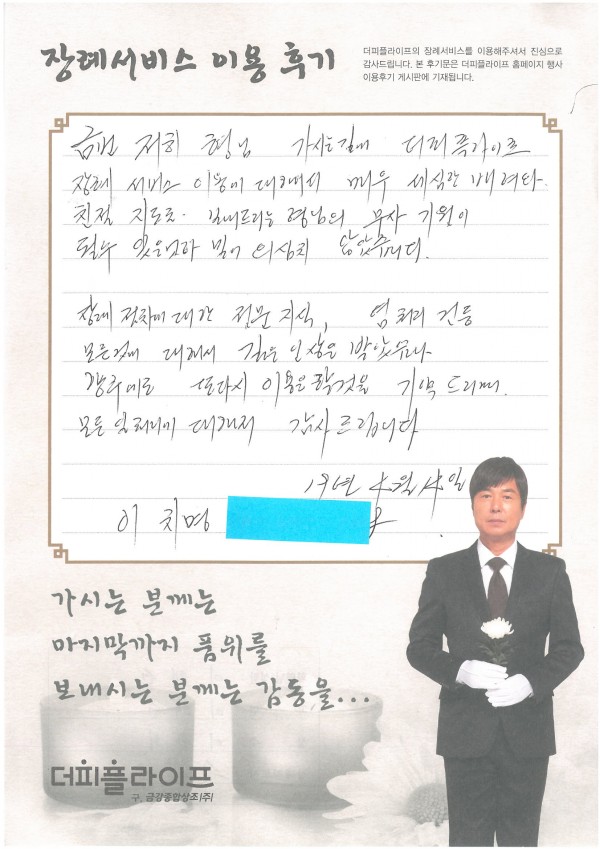 장례서비스 이용 후기
더피플라이프의 장례서비스를 이용해주셔서 진심으로
감사드립니다. 본 후기문은 더피플라이프 홈페이지 행사
이용후기 게시판에 기재됩니다.
금번 저희 형님 가시는길에 더피플라이프
장례 서비스 이용에 대해서 매우 세심한 배려와
친절 지도로 보내드리는 형님의 무사 기원이
될수 있을 의심치 않았습니다.
장례 절차에 대한 전문 지식, 염 처리 건등
모든것에 대해서 깊은 인상을 받았습니다
향후에도 또다시 이용을 할것을 기약 드리며.
모든 대하여 감사드립니다
19년 4월 14일
이 치명
가시는 분께는
마지막까지 품위를
보내시는 분께는 감동을...
더피플라이프
구. 금강종합상조(주)